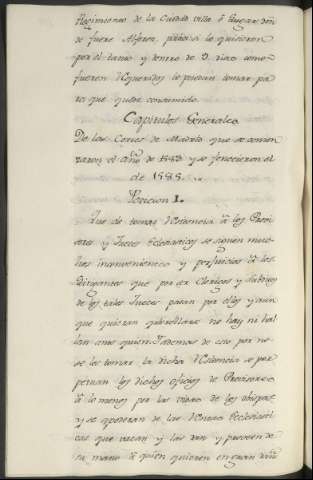 Regimiento de la Ciudad villa ó lugar don
de fuere Alferez para si lo quisieren
por el tanto y dentro de 9. dias como
fueren requeridos lo puedan tomar pa
ra que quede consumido
Capitulos Generales
De las Cortes de Madrid que se comen
zaron el año de 1583 y se fenecieron el
de 1585.
Peticion I.
Que de tomar residencia á los Provi
sores y Jueces Eclesiasticos se siguen muc
hos inconvenientes y perjuicios á los
litigantes que por ser Clerigos y subditos
de los tales Jueces pasan por ellos y aun
que quieran querellarse no hay ni hal
lan ante quien. Ademas de eso por no
se les tomar la dicha residencia se per
petuan los dichos oficios de Provisores
á lo menos por las vidas de los obispos
y se apoderan de las rentas Eclesiasti
cas que vacan y las dan y proveen de
su mano á quien quieren en gran daño